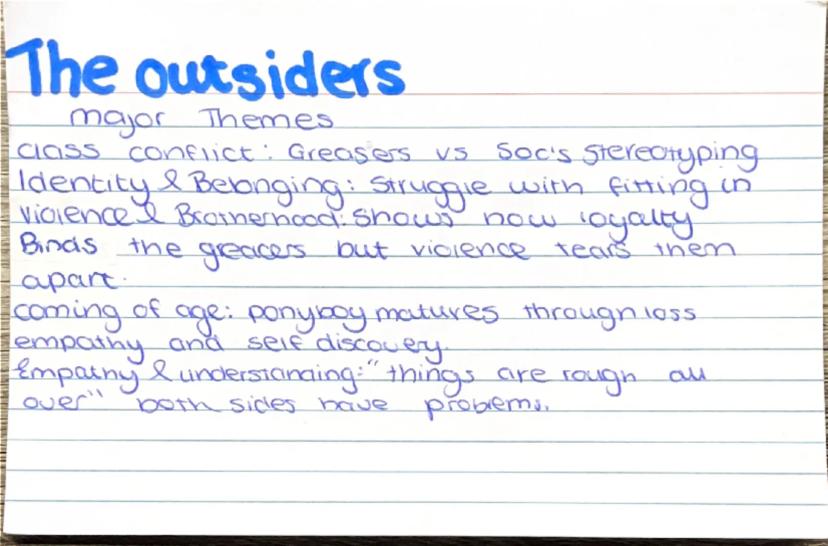 The outsiders
major Themes
class conflict: Greasers vs Soc's stereotyping
Identity & Belonging: struggle with fitting in
violence & Brotherhood: shows how loyalty
Binds the greacers but violence tears them
apart.
coming of age: ponyboy matures through loss
empathy and self discovery.
Empathy & understanding: "things are rough all
over" both sides have problems.